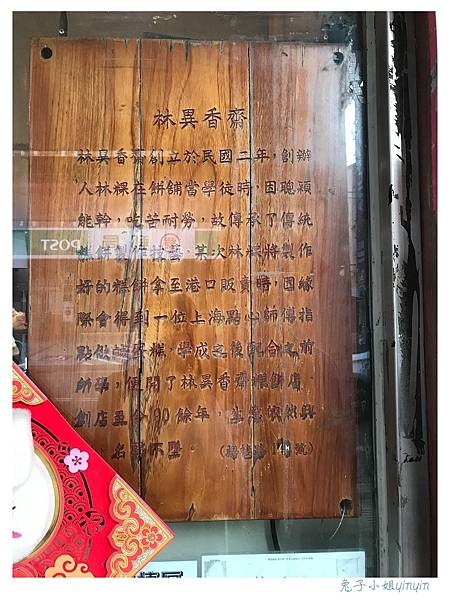 林異香齋
林異香齋創立於民國二年,創辦
人林粿在餅舖當學徒時,因聰穎
能幹,吃苦耐勞,故傳承了傳統
糕餅製作技藝.某次林粿將製作
好的糕餅拿至港口販賣時,因緣
際會得到一位上海點心師傅指
點做 蛋糕.學成之後配合之前
所學,便開了林異香齋 餅店
創店至今90餘年,生意 依然興
名聲不墜
號)
POST
兔子小姐yinyin